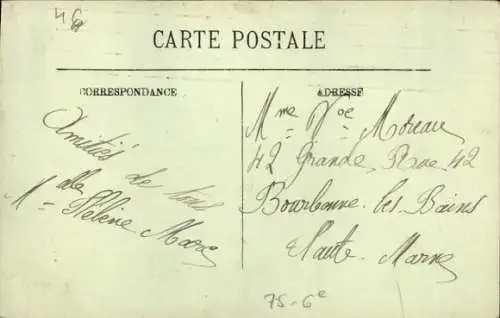 CARTE POSTALE
CORRESPONDANCE
Amitiés de tous
Mlle Hélène
ADRESSE
Mme Vve Moreau
42 Grande Rue 42
Bourbonne les Bains
Haute Marne
75-6e